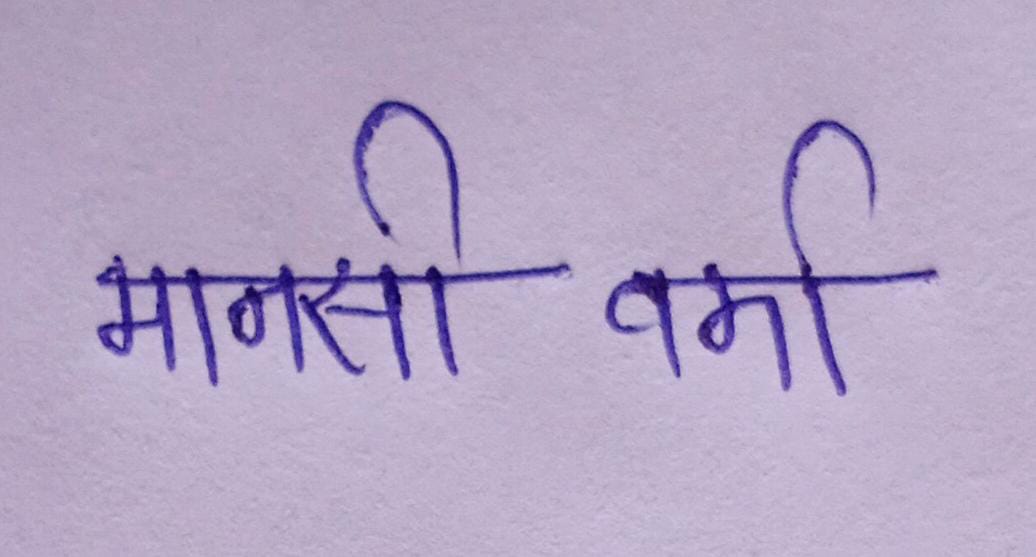 मानसी वर्मा